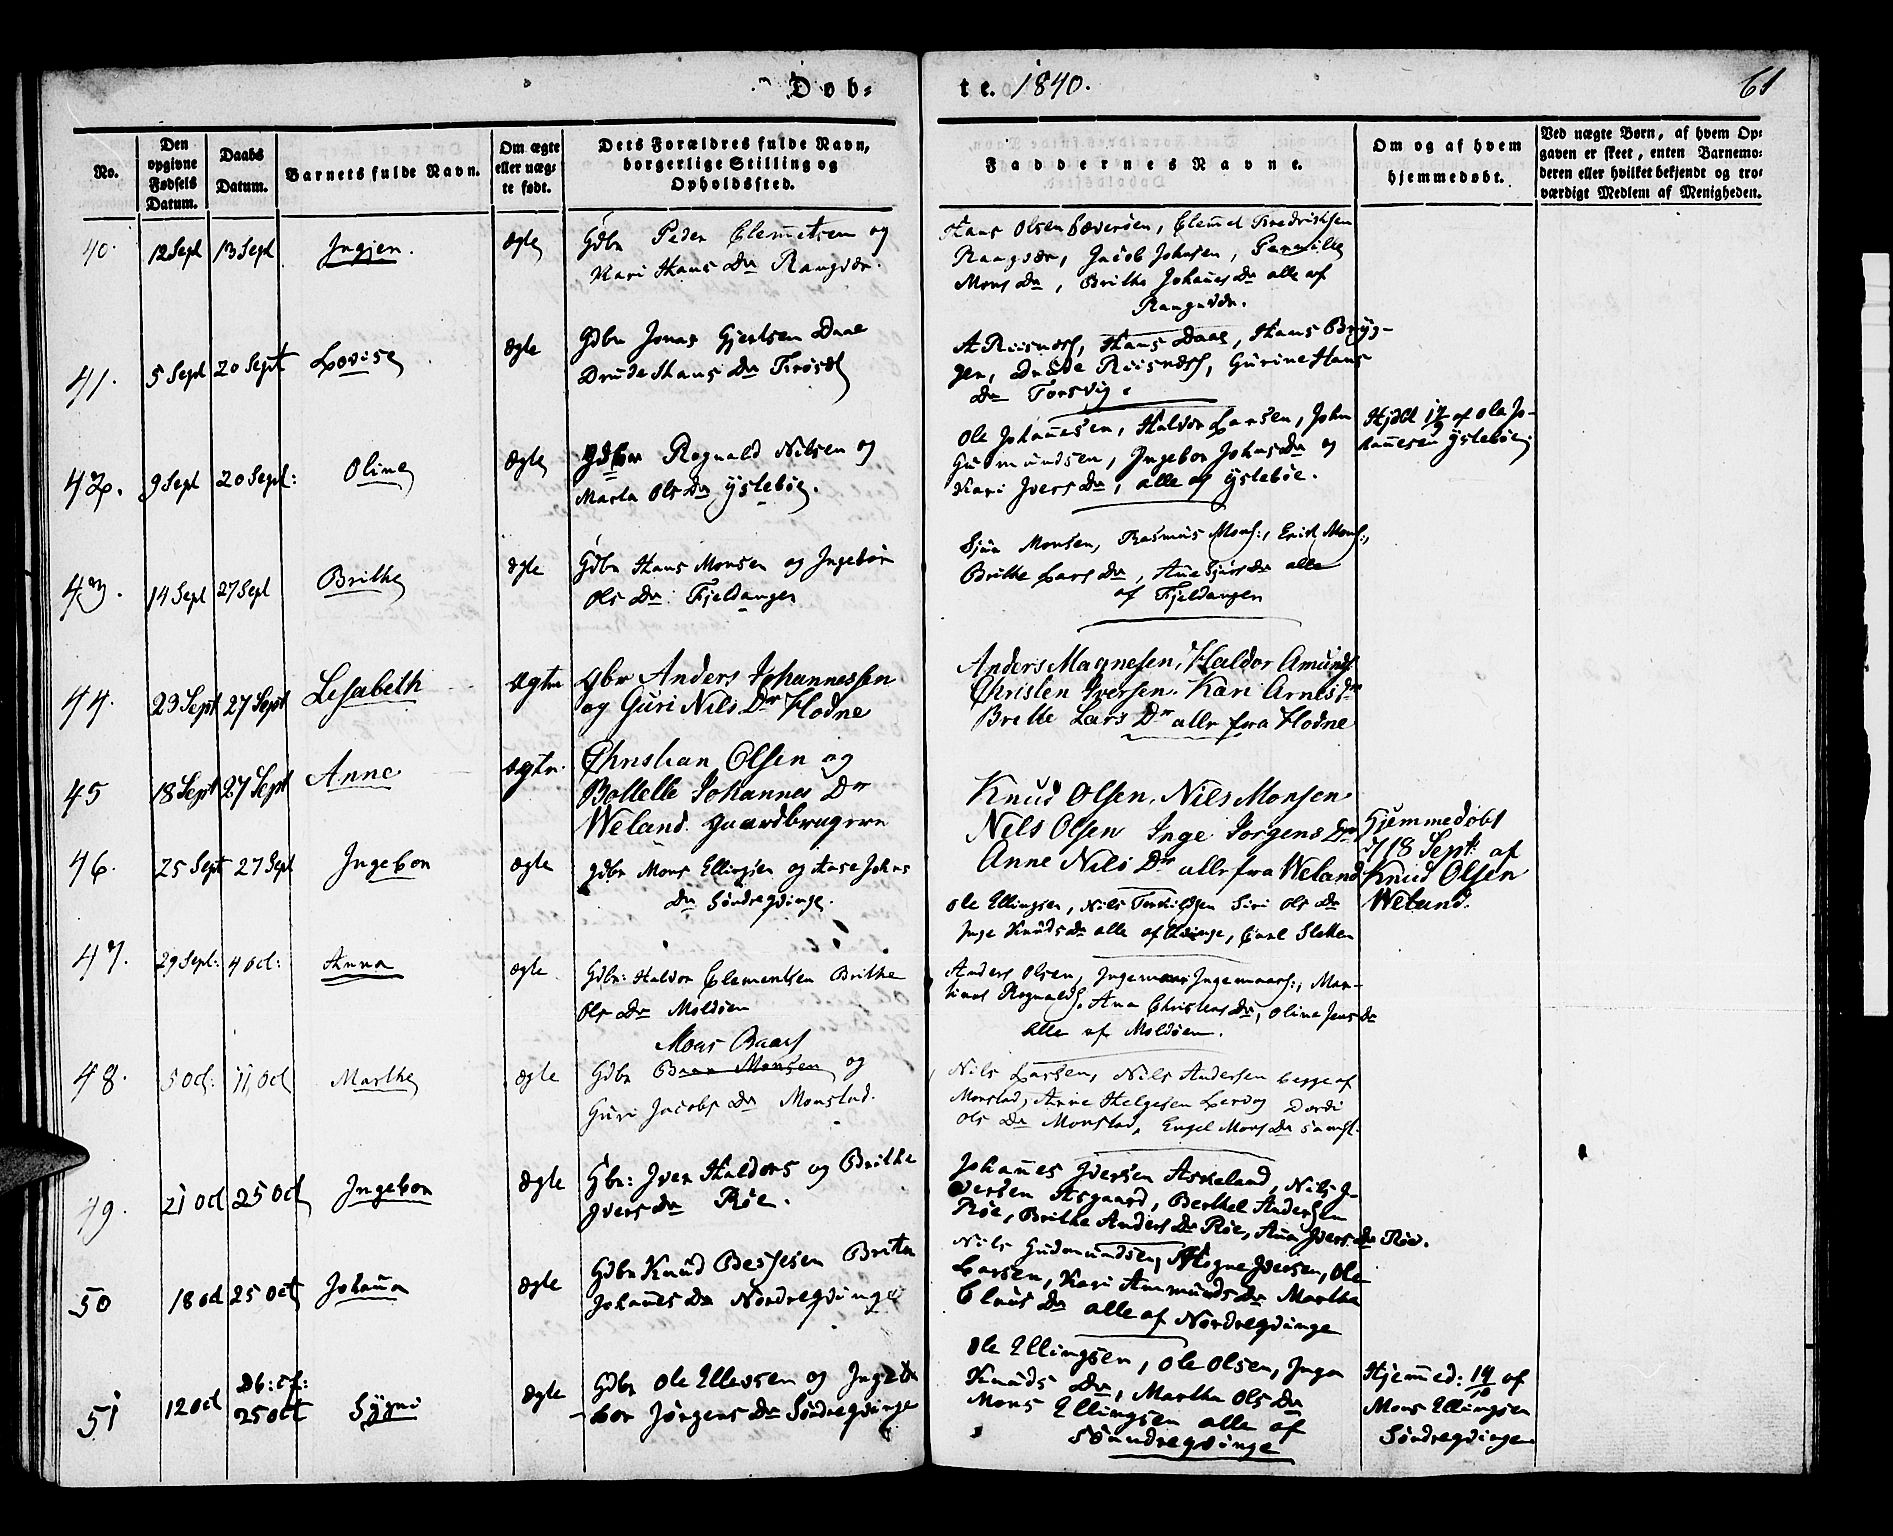 Døb-
te. 1840.
61
No.
Den opgivne Fødsels Datum.
Daabs Datum.
Barnets fulde Navn.
Om ægte eller uægte født.
Dets Forældres fulde Navn, borgerlige Stilling og Opholdssted.
Faddernes Navne.
Om og af hvem hjemmedøbt.
Ved uægte Børn, af hvem Opgaven er skeet, enten Barnemoderen eller hvilket bekjendt og troværdigt Medlem af Menigheden.
40. 12 Sept 13 Sept Ingjer. ægte
Gdbr Peder Clemetsen og
Kari Hans Dr
Hans Olsen, Clemet Fredriksen
Jacob Johnsen, Pernille
Mons Dr, Brithe Johanes Dr alle af
41. 5 Sept 20 Sept Lovise ægte
Gdbr Jonas Gjertsen Daae
Drude Hans Dr
A Riisnæs, Hans Daae, Hans Bryg-
gen, Drude Riisnæss, Gurine Hans
Dr Torsvig.
42. 9 Sept 20 Sept: Oline ægte
Gdbr Rognald Nilsen og
Marta Ols Dr Ystebøe.
Ole Johannesen, Haldor Larsen, John
Gudmundsen, Ingebor Johns Dr og
Kari Ivers Dr, alle af Ystebøe.
Hjdbt 17/9 af Ola Jo-
hannesen Ystebøe;
43. 14 Sept 27 Sept Brithe ægte
Gdbr Hans Monsen og Ingebor
Ols Dr. Fjeldanger
Sjur Monsen, Rasmus Mons:, Erik Mons:,
Brithe Lars Dr, Ane Sjurs Dr alle
af Fjeldanger
44. 23 Sept 27 Sept Lesabeth ægte
gbr Anders Johannessen
og Guri Nils Dr Hodne
Anders Magnesen, Haldor Amunds
Christen Iversen. Kari Arnes Dr
Britte Lars Dr alle fra Hodne
45 18 Sept 27 Sept Anne ægte.
Christian Olsen og
Bottelle Johannes Dr
Weland. gaardbrugere
Knud Olsen, Nils Monsen
Nels Olsen Inge Jorgens Dr
Anne Nils Dr alle fra Weland
Hjemmedøbt
18 Sept: af
Knud Olsen
Weland.
46. 25 Sept 27 Sept Ingebor ægte
gdbr Mons Ellingsen og Aase Johns
Dr Søndreqvinge.
Ole Ellingsen, Nils Torkildsen Siri Ols Dr
Inge Knuds Dr alle af Qvinge, Carl Sletten
47. 29 Sept: 4 Oct: Anna ægte
Gdbr: Haldor Clementsen Brithe
Ols Dr Moldøen
Anders Olsen, Ingemaar Ingemaars:, Mar-
tinus Rognalds, Ana Christens Dr, Oline Jens Dr
alle af Moldøen.
48. 5 Oct: 11 Oct Marthe ægte
Mons Baars
Gdbr Baar Monsen og
Guri Jacobs Dr Monstad.
Nils Larsen, Nils Andersen begge af
Monstad, Anne Helgesen Dordi
Ols Dr Monstad, Engel Mons Dr samst.
49. 21 Oct 25 Oct Ingebor ægte
Gbr: Iver Haldors og Brithe
Ivers Dr Røe.
Johanes Iversen Askeland, Nils I-
versen Aasgaard, Berthel Andersen
Røe, Brithe Anders Dr Røe, Ana Ivers Dr Røe.
50 18 Oct 25 Oct Johana ægte
Gdbr Knud Besjesen Britha
Johanes Dr Nordreqvinge
Nils Gudmundsen, Mogne Iversen, Ole
Larsen, Kari Ammunds Dr Martha
Claus Dr alle af Nordreqvinge
51 12 Oct
25 Oct Sygni ægte
Gdbr Ole Ellevsen og Inge-
bor Jørgens Dr Søndreqvinge
Ole Ellingsen, Ole Olsen, Inga
Knuds Dr, Martha Ols Dr
Mons Ellingsen alle af
Søndreqvinge
Hjemmed: 14/10 af
Mons Ellingsen
Søndreqvinge.